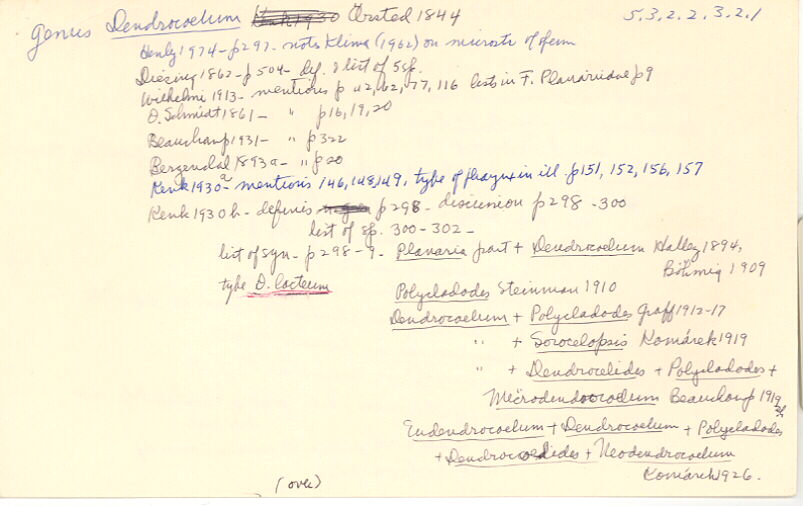 genus Dendrocoelum Kenk 1930 Örsted 1844 5.3.2.2.3.2.1
Henly 1974 - p 297. notes Klima (1962) on microstr of ferm
Diesing 1862 - p 504 - def. & list of 5 sp.
Wilhelmi 1913 - mentions p 42, 62, 77, 116 lists in F. Planariidae p 9
O. Schmidt 1861 - " p 16, 19, 20
Beauchamp 1931 - " p 322
Bergendal 1893a - " p 20
Kenk 1930a - mentions 146, 148, 149, type of pharynx in ill. p 151, 152, 156, 157
Kenk 1930b - defines p 298 - discussion p 298 - 300
list of sp. 300 - 302 -
list of syn - p 298 - 9 - Planaria part + Dendrocoelum Hallez 1894,
Böhmig 1909
type D. lacteum
Polycladodes Steinman 1910
Dendrocoelum + Polycladodes Graff 1912-17
" + Sorocelopsis Komárek 1919
" + Dendrocelides + Polycladodes +
Microdendrocoelum Beauchamp 1919
Eudendrocoelum + Dendrocoelum + Polycladodes
+ Dendrocoelides + Neodendrocoelum
Komárek 1926.
(over)